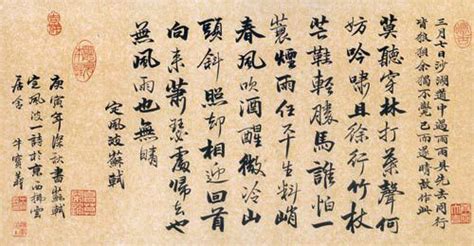 三月七日沙湖道中遇雨雨具先去同行
皆狼狽余獨不覺已而遂晴故作此
莫聽穿林打葉聲何
妨吟嘯且徐行竹杖
芒鞋輕勝馬誰怕一
蓑煙雨任平生料峭
春風吹酒醒微冷山
頭斜照却相迎回首
向来蕭瑟處歸去也
無風雨也無晴
定風波蘇軾
庚寅年深秋書蘇軾
定風波一詞於京西拂雲
居舍 牛寶